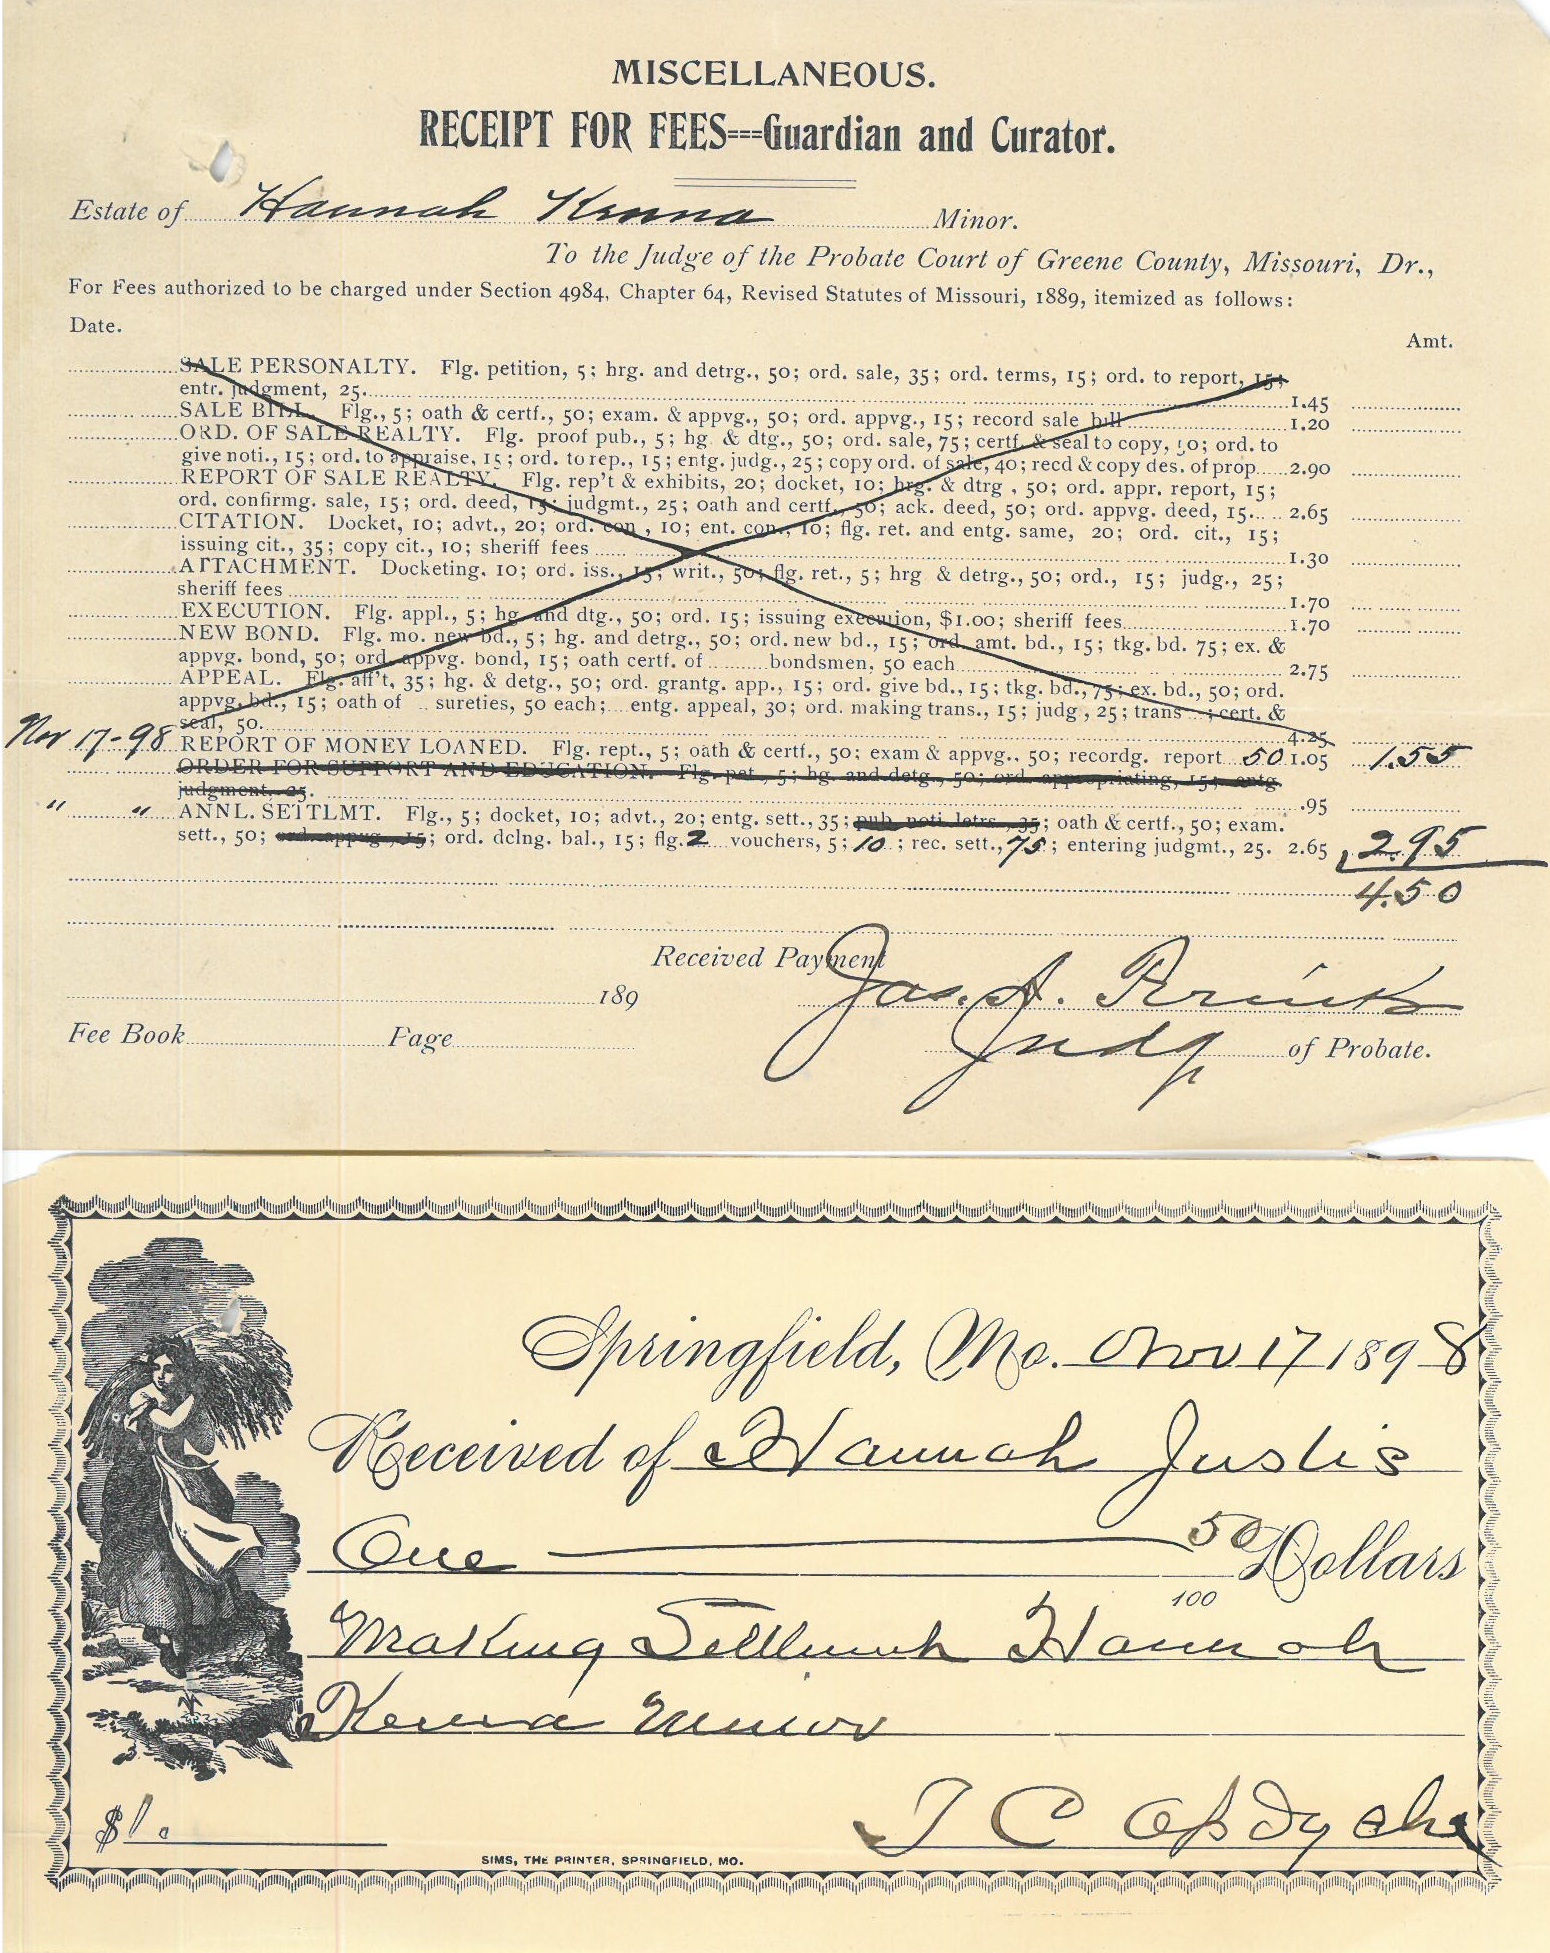 MISCELLANEOUS.
RECEIPT FOR FEES===Guardian and Curator.
Estate of Hannah Kenna Minor.
To the Judge of the Probate Court of Greene County, Missouri, Dr.,
For Fees authorized to be charged under Section 4984, Chapter 64, Revised Statutes of Missouri, 1889, itemized as follows:
Date.
Amt.
SALE PERSONALTY. Flg. petition, 5; hrg. and detrg., 50; ord. sale, 35; ord. terms, 15; ord. to report, 15;
entr. judgment, 25. 1.45
SALE BILL. Flg., 5; oath & certf., 50; exam. & appvg., 50; ord. appvg., 15; record sale bill 1.20
ORD. OF SALE REALTY. Flg. proof pub., 5; hg. & dtg., 50; ord. sale, 75; certf. & seal to copy, 50; ord. to
give noti., 15; ord. to appraise, 15; ord. to rep., 15; entg. judg., 25; copy ord. of sale, 40; recd & copy des. of prop. 2.90
REPORT OF SALE REALTY. Flg. rep't & exhibits, 20; docket, 10; hrg. & dtrg , 50; ord. appr. report, 15;
ord. confirmg. sale, 15; ord. deed, 15; judgmt., 25; oath and certf., 50; ack. deed, 50; ord. appvg. deed, 15. 2.65
CITATION. Docket, 10; advt., 20; ord. con , 10; ent. con., 10; flg. ret. and entg. same, 20; ord. cit., 15;
issuing cit., 35; copy cit., 10; sheriff fees 1.30
ATTACHMENT. Docketing. 10; ord. iss., 15; writ., 50; flg. ret., 5; hrg & detrg., 50; ord., 15; judg., 25;
sheriff fees 1.70
EXECUTION. Flg. appl., 5; hg. and dtg., 50; ord. 15; issuing execution, $1.00; sheriff fees. 1.70
NEW BOND. Flg. mo. new bd., 5; hg. and detrg., 50; ord. new bd., 15; ord. amt. bd., 15; tkg. bd. 75; ex. &
appvg. bond, 50; ord. appvg. bond, 15; oath certf. of bondsmen, 50 each 2.75
APPEAL. Flg. aff't, 35; hg. & detg., 50; ord. grantg. app., 15; ord. give bd., 15; tkg. bd., 75; ex. bd., 50; ord.
appvg. bd., 15; oath of sureties, 50 each; entg. appeal, 30; ord. making trans., 15; judg , 25; trans ; cert. &
seal, 50. 4.25
Nov 17-98 REPORT OF MONEY LOANED. Flg. rept., 5; oath & certf., 50; exam & appvg.. 50; recordg. report 50 1.05 1.55
ORDER FOR SUPPORT AND EDUCATION. Flg. pet., 5; hg. and detg., 50; ord. appropriating, 15; entg.
judgment. 25. .95
" " ANNL. SETTLMT. Flg., 5; docket, 10; advt., 20; entg. sett., 35; pub. noti. letrs., 35; oath & certf., 50; exam.
sett., 50; ord. appvg., 15; ord. dclng. bal., 15; flg. 2 vouchers, 5; 10 ; rec. sett., 75; entering judgmt., 25. 2.65 2.95
4.50
Received Payment
189 Jas. A.
Fee Book Page Judg of Probate.
Springfield, Mo. Nov 17 1898
Received of Hannah Justis
One 50/100 Dollars
Making Settlement Hannah
Kenna Minor
T C Opdycke
$1.
SIMS, THE PRINTER, SPRINGFIELD, MO.